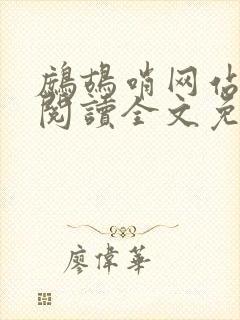 鷓鴣哨网估
閱讀全文免
廖偉華